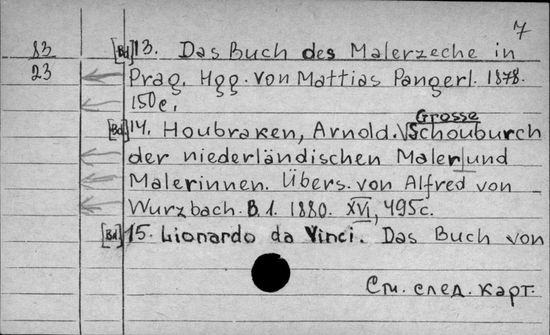 7
83 [Bd] 13. Das Buch des Malerzeche in
23 Prag. Hgg. von Mattias Pangerl. 1878.
150c.
[Bd] 14. Houbraken, Arnold. Grosse Schouburch
der niederländischen Maler und
Malerinnen. Übers. von Alfred von
Wurzbach. B. 1. 1880. XVI, 495c.
[Bd] 15. Lionardo da Vinci. Das Buch von
См. след. карт.